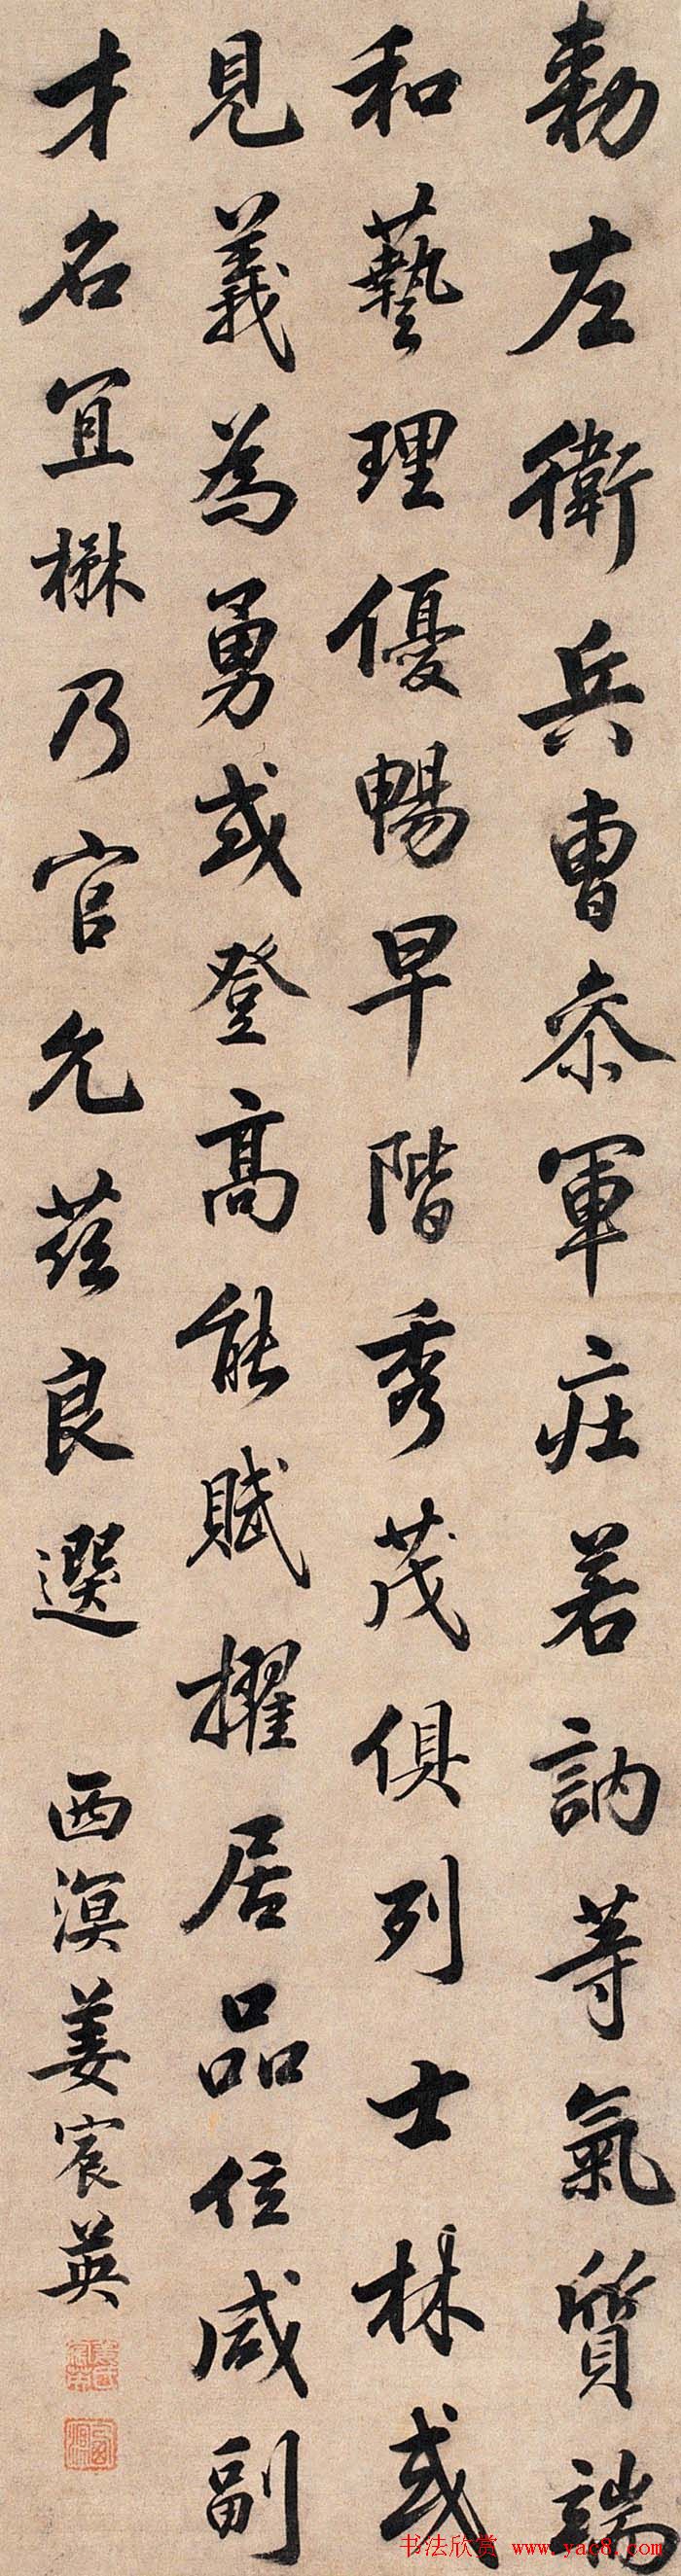 勅左衛兵曹叅軍莊若訥等氣質端
和藝理優暢早階秀茂俱列士林或
見義為勇或登高能賦擢居品位咸副
才名宜楙乃官允茲良選
西溟姜宸英
书法欣赏 www.yac8.com